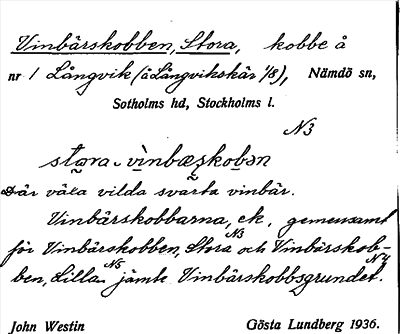 Vinbärskobben, Stora, kobbe å
nr 1 Långvik (å Långvikskär 1/8), Nämdö sn,
Sotholms hd, Stockholms l.
N3
stọra vìnbæṣkobən
Där växa vilda svarta vinbär.
Vinbärskobbarna, ek, gemensamt
för Vinbärskobben, Stora N3 och Vinbärskob-
ben, Lilla N5 jämte Vinbärskobbsgrundet. N4
John Westin Gösta Lundberg 1936.